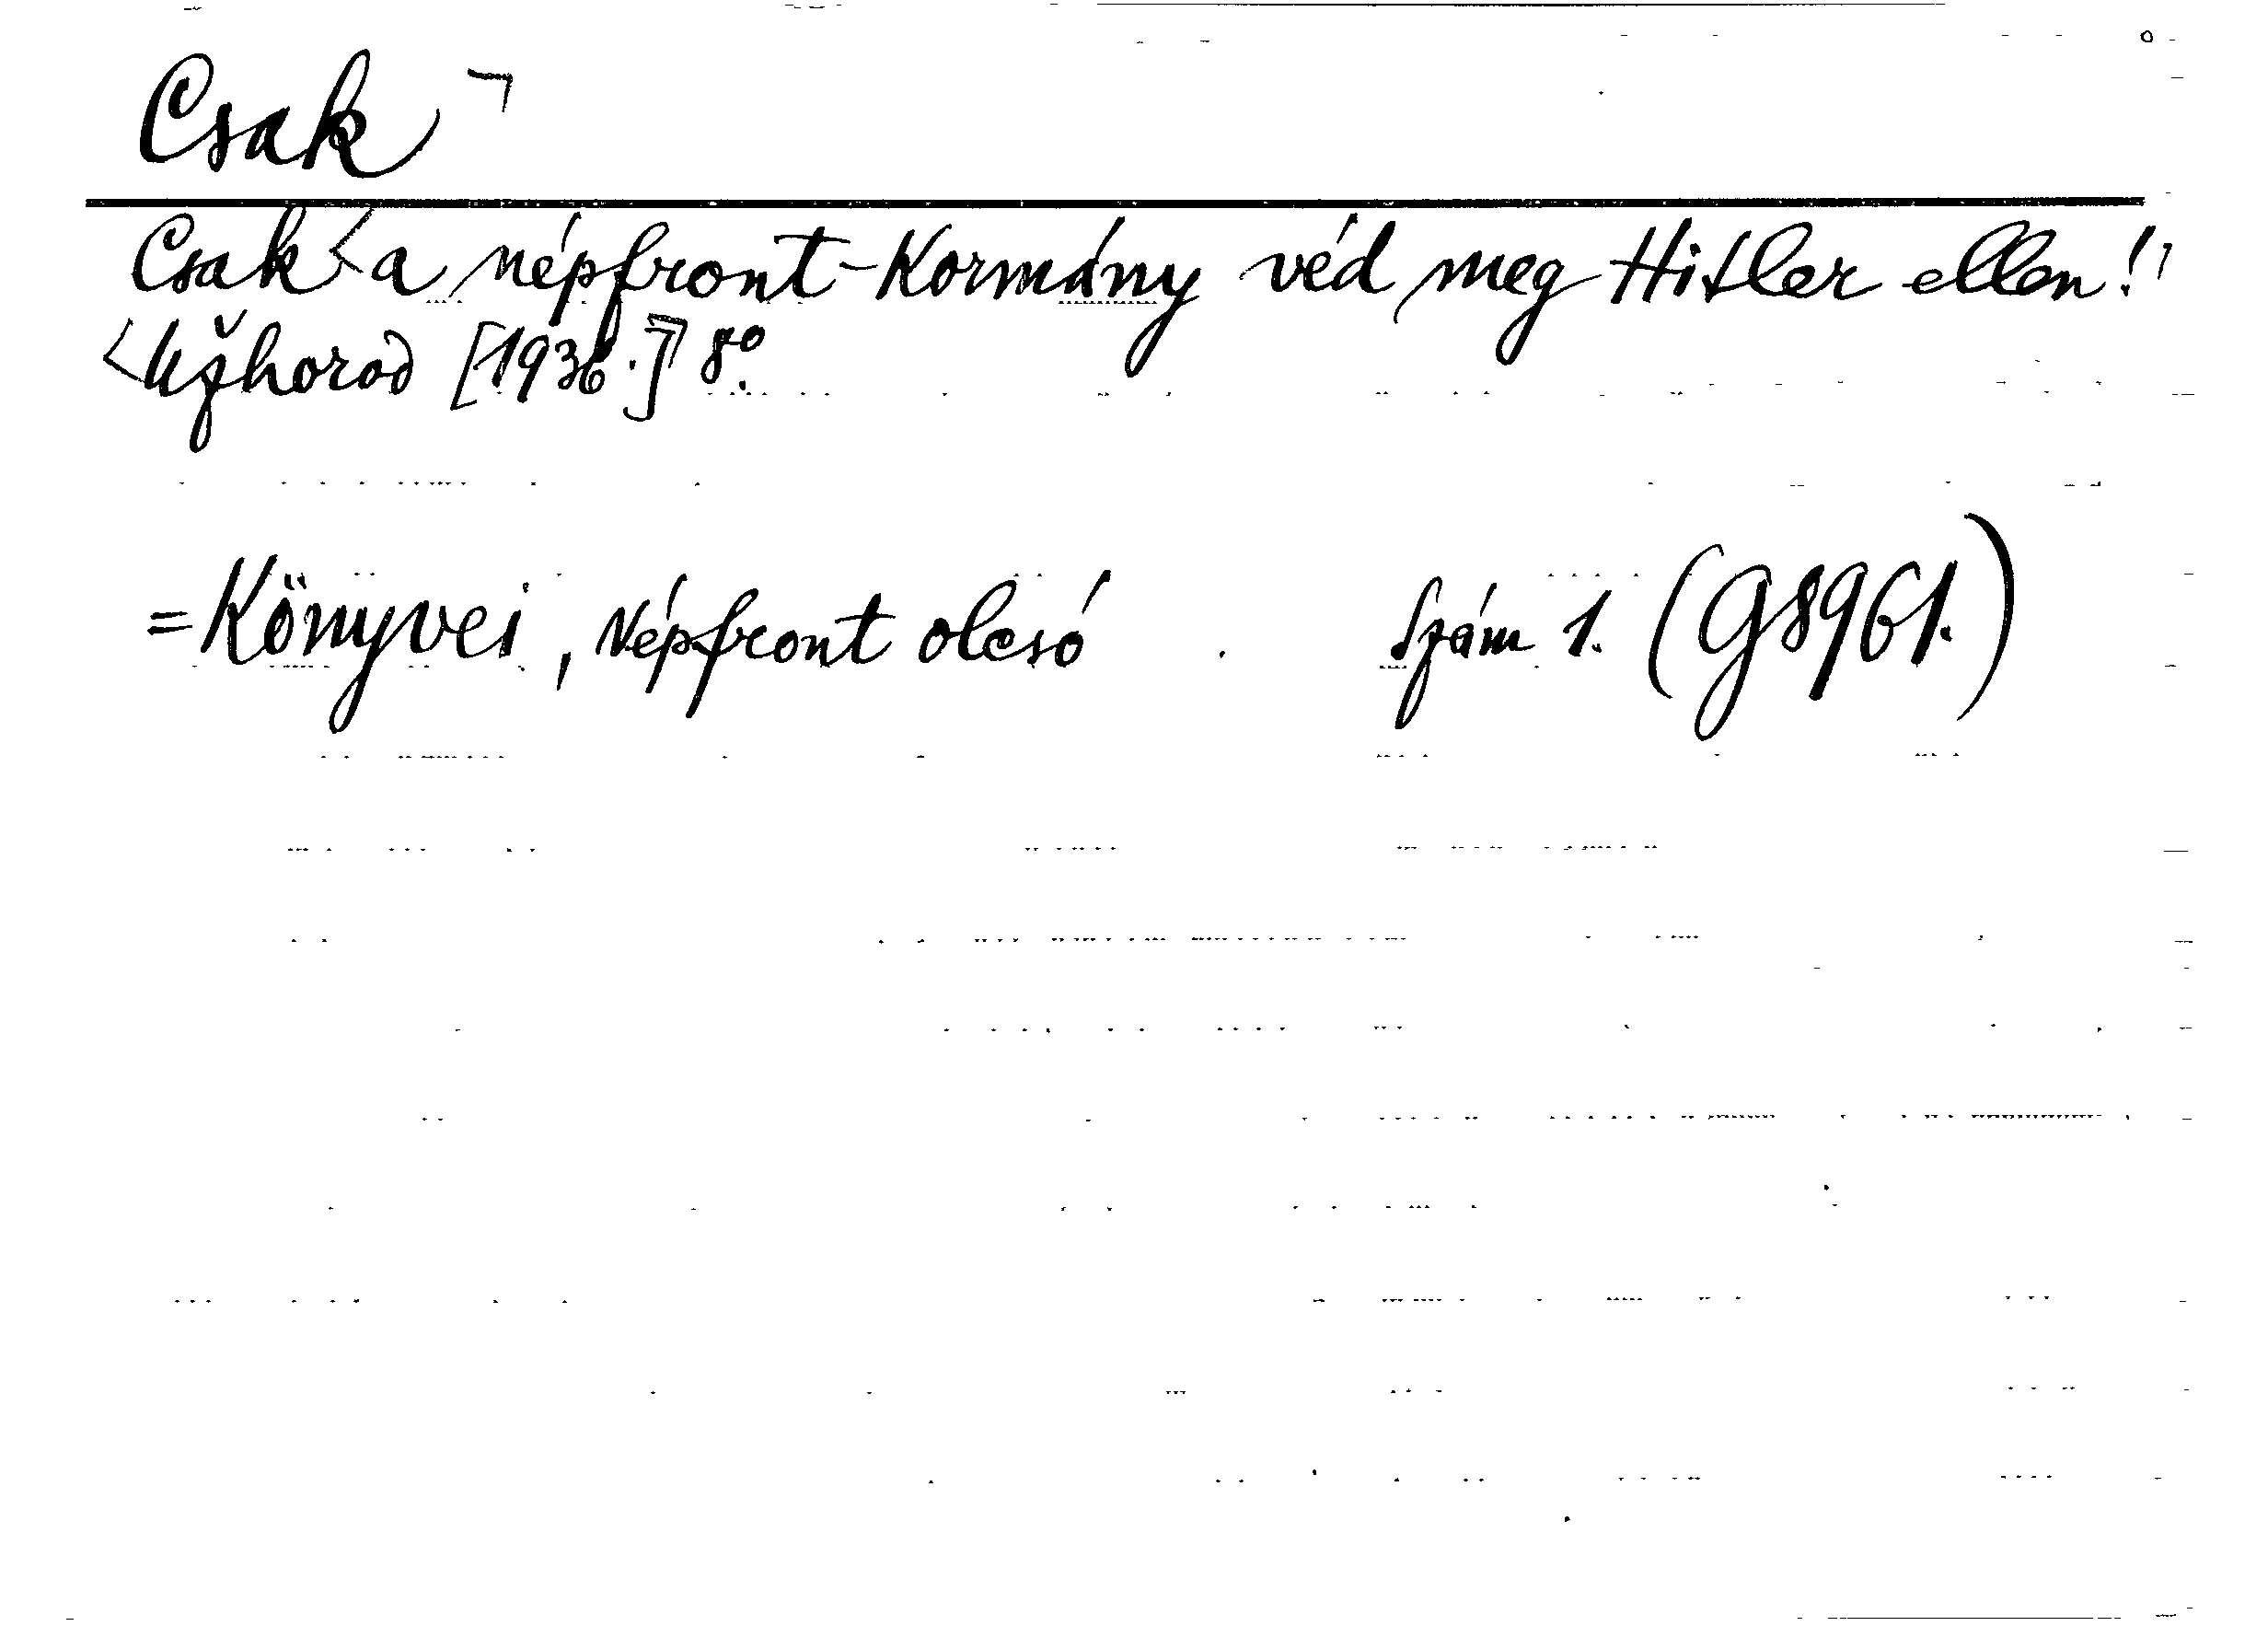 Csak ¬
Csak < a népfront-Kormány véd meg Hitler ellen!¬
<Užhorod [1936.]¬ 8º.
=Könyvei, Népfront olcsó . Szám 1. (G8961.)